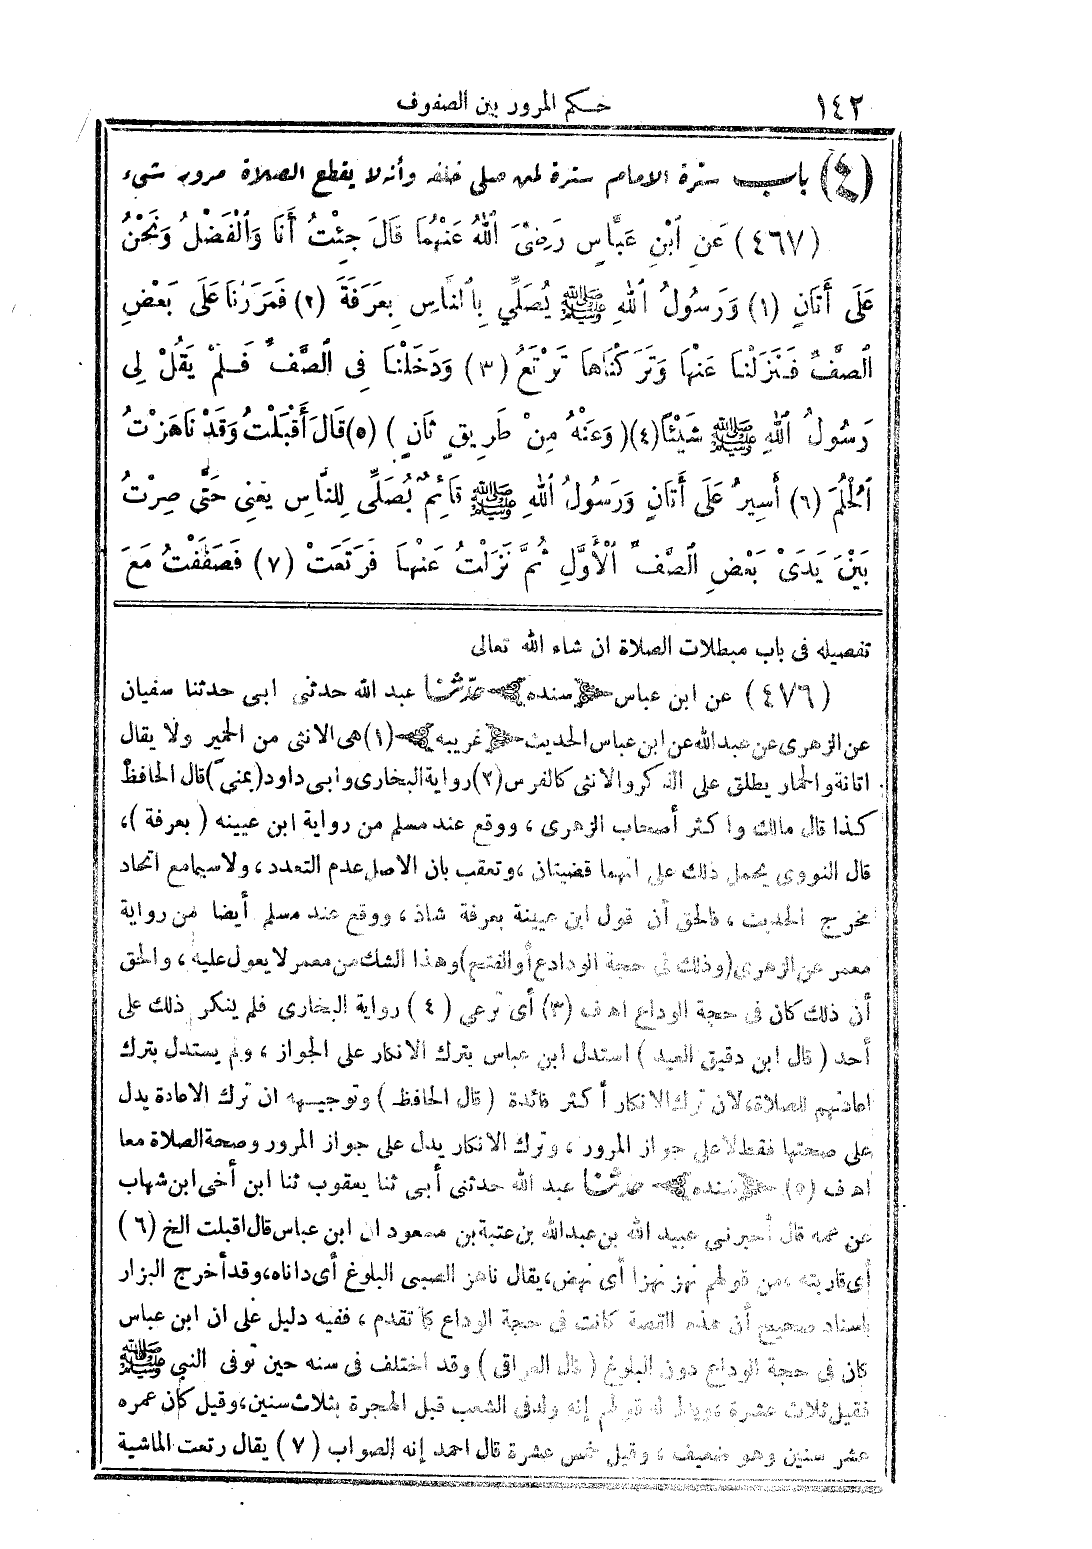 ١٤٢ حكم المرور بين الصفوف
(٤) باب سترة الامام سترة لمن صلى خلفه وأنه لا يقطع الصلاة مروره شيء
(٤٦٧) عَنِ ابْنِ عَبَّاسٍ رَضِىَ اللهُ عَنْهُمَا قَالَ جِئْتُ أَنَا وَالْفَضْلُ وَنَحْنُ
عَلَى أَتَانٍ (١) وَرَسُولُ اللهِ ﷺ يُصَلِّي بِالنَّاسِ بِعَرَفَةَ (٢) فَمَرَرْنَا عَلَى بَعْضِ
الصَّفِّ فَنَزَلْنَا عَنْهَا وَتَرَكْنَاهَا تَرْتَعُ (٣) وَدَخَلْنَا فِى الصَّفِّ فَلَمْ يَقُلْ لِى
رَسُولُ اللهِ ﷺ شَيْئًا (٤) (وَعَنْهُ مِنْ طَرِيقٍ ثَانٍ) (٥) قَالَ أَقْبَلْتُ وَقَدْ نَاهَزْتُ
الْحُلُمَ (٦) أَسِيرُ عَلَى أَتَانٍ وَرَسُولُ اللهِ ﷺ قَائِمٌ يُصَلِّى لِلنَّاسِ يَعْنِى حَتَّى صِرْتُ
بَيْنَ يَدَىْ بَعْضِ الصَّفِّ الْأَوَّلِ ثُمَّ نَزَلْتُ عَنْهَا فَرَتَعَتْ (٧) فَصَفَفْتُ مَعَ
تفصيله فى باب مبطلات الصلاة ان شاء الله تعالى
(٤٧٦) عن ابن عباس ﴿سنده﴾ حدّثنا عبد الله حدثنى ابى حدثنا سفيان
عن الزهرى عن عبد الله عن ابن عباس الحديث ﴿غريبه﴾ (١) هى الانثى من الحمير ولا يقال
اتانة والحمار يطلق على الذكر والانثى كالفرس (٢) رواية البخارى وابى داود (بمنى) قال الحافظ
كذا قال مالك واكثر أصحاب الزهرى، ووقع عند مسلم من رواية ابن عيينه (بعرفة)،
قال النووى يحمل ذلك على انهما قضيتان، وتعقب بان الاصل عدم التعدد، ولا سيما مع اتحاد
مخرج الحديث، فالحق أن قول ابن عيينة بعرفة شاذ، ووقع عند مسلم أيضا من رواية
معمر عن الزهرى (وذلك فى حجة الوداع أو الفتح) وهذا الشك من معمر لا يعول عليه، والحق
أن ذلك كان فى حجة الوداع اهـ ف (٣) أى ترعى (٤) رواية البخارى فلم ينكر ذلك على
أحد (قال ابن دقيق العيد) استدل ابن عباس بترك الانكار على الجواز، ولم يستدل بترك
اعادتهم للصلاة، لان ترك الانكار أكثر فائدة (قال الحافظ) وتوجيهه ان ترك الاعادة يدل
على صحتها فقط لا على جواز المرور، وترك الانكار يدل على جواز المرور وصحة الصلاة معا
اهـ ف (٥) ﴿سنده﴾ حدّثنا عبد الله حدثنى أبى ثنا يعقوب ثنا ابن أخى ابن شهاب
عن عمه قال أخبرنى عبيد الله بن عبد الله بن عتبة بن مسعود ان ابن عباس قال اقبلت الخ (٦)
أى قاربته، من قولهم نهز نهزا أى نهض، يقال ناهز الصبى البلوغ أى داناه، وقد أخرج البزار
باسناد صحيح أن هذه القصة كانت فى حجة الوداع كما تقدم، ففيه دليل على ان ابن عباس
كان فى حجة الوداع دون البلوغ (قال العراقى) وقد اختلف فى سنه حين توفى النبى ﷺ
فقيل ثلاث عشرة، ويدل له قولهم إنه ولد فى الشعب قبل الهجرة بثلاث سنين، وقيل كان عمره
عشر سنين وهو ضعيف، وقيل خمس عشرة قال احمد إنه الصواب (٧) يقال رتعت الماشية